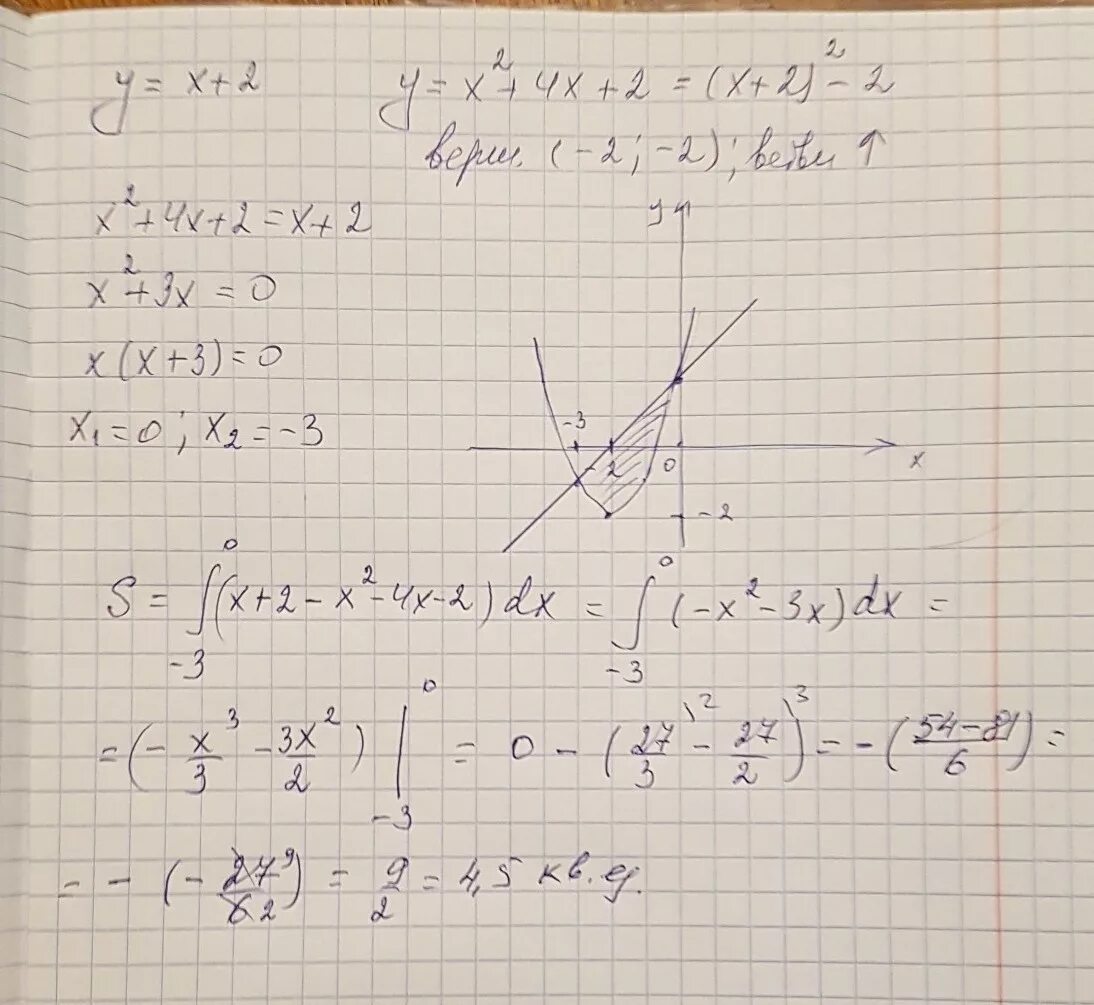 y = x + 2    y = x² + 4x + 2 = (x+2)² - 2
верш. (-2; -2); ветви ↑
x² + 4x + 2 = x + 2
x² + 3x = 0
x(x+3) = 0
x₁ = 0; x₂ = -3
y
-3
-2
0
x
-2
S = ∫₋₃⁰ (x + 2 - x² - 4x - 2) dx = ∫₋₃⁰ (-x² - 3x) dx =
= (- x³/3 - 3x²/2) |₋₃⁰ = 0 - (27/3 \² - 27/2 \³) = - ((54-81)/6) =
= - (- 27/6 9/2) = 9/2 = 4,5 кв. ед.